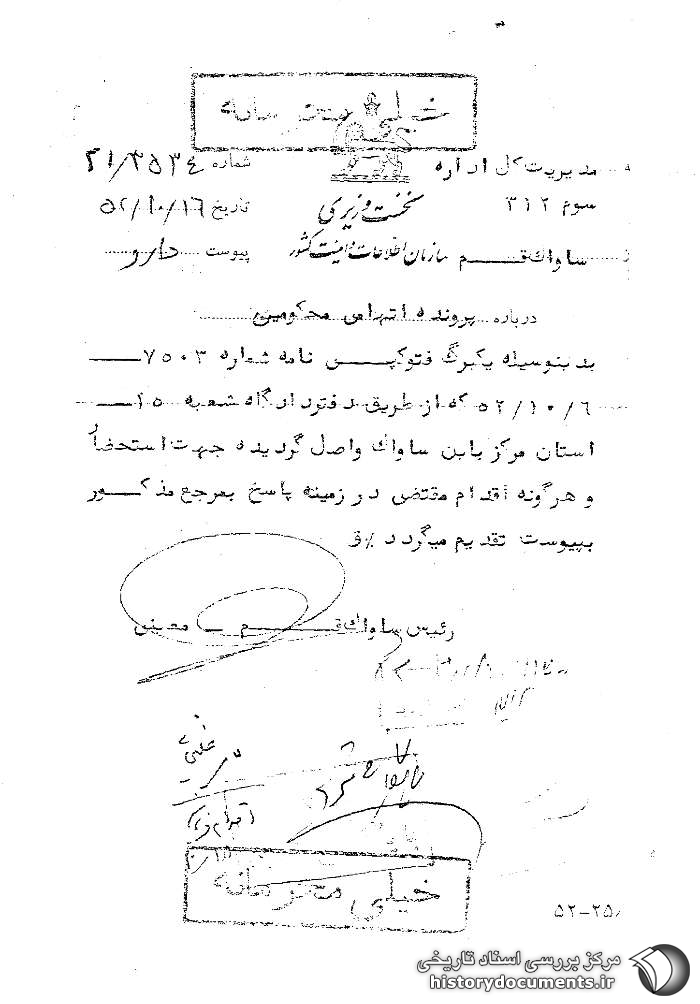 خیلی محرمانه
مدیریت کل اداره
سوم ۳۱۲
ساواک قم
نخست وزیری
سازمان اطلاعات و امنیت کشور
شماره ۲۱/۳۵۳۴
تاریخ ۵۲/۱۰/۱۶
پیوست دارد
درباره پرونده اتهامی محکومین
بدینوسیله یکبرگ فتوکپی نامه شماره ۷۵۰۳
۵۲/۱۰/۶ که از طریق دفتر دادگاه شعبه ۱۵
استان مرکز باین ساواک واصل گردیده جهت استحضار
و هرگونه اقدام مقتضی در زمینه پاسخ بمرجع مذکور
بپیوست تقدیم میگردد ٪ق
رئیس ساواک قم ـ معینی
خیلی محرمانه
۵۲-۲۵
مرکز بررسی اسناد تاریخی
historydocuments.ir